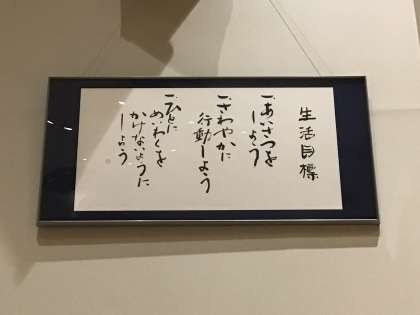 生活目標
一、あいさつを
しよう
一、さわやかに
行動しよう
一、ひとに
めいわくを
かけないように
しよう